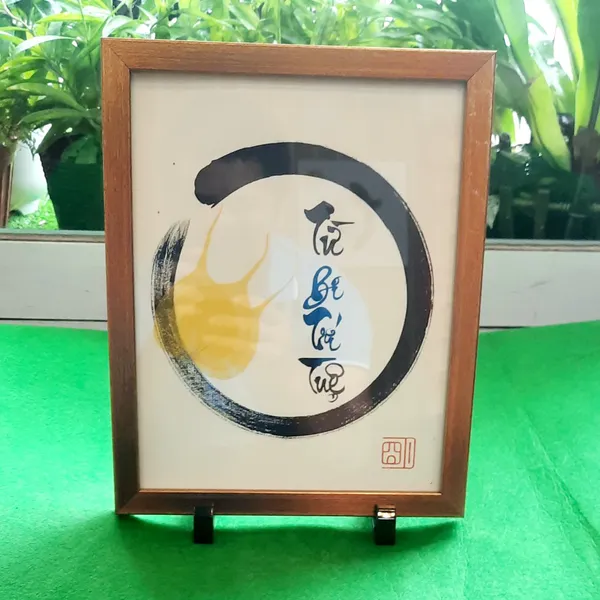 Từ
Bi
Trí
Tuệ